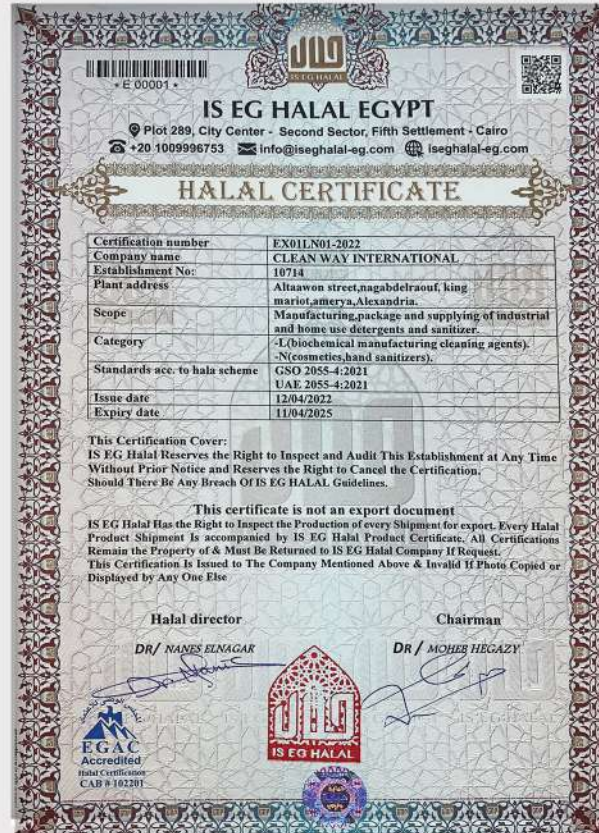 حلال
IS EG HALAL
* E 00001 *
IS EG HALAL EGYPT
Plot 289, City Center - Second Sector, Fifth Settlement - Cairo
+20 1009996753 info@iseghalal-eg.com iseghalal-eg.com
HALAL CERTIFICATE
Certification number EX01LN01-2022
Company name CLEAN WAY INTERNATIONAL
Establishment No: 10714
Plant address Altaawon street,nagabdelraouf, king
mariot,amerya,Alexandria.
Scope Manufacturing,package and supplying of industrial
and home use detergents and sanitizer.
Category -L(biochemical manufacturing cleaning agents).
-N(cosmetics,hand sanitizers).
Standards acc. to hala scheme GSO 2055-4:2021
UAE 2055-4:2021
Issue date 12/04/2022
Expiry date 11/04/2025
This Certification Cover:
IS EG Halal Reserves the Right to Inspect and Audit This Establishment at Any Time
Without Prior Notice and Reserves the Right to Cancel the Certification.
Should There Be Any Breach Of IS EG HALAL Guidelines.
This certificate is not an export document
IS EG Halal Has the Right to Inspect the Production of every Shipment for export. Every Halal
Product Shipment Is accompanied by IS EG Halal Product Certificate, All Certifications
Remain the Property of & Must Be Returned to IS EG Halal Company If Request.
This Certification Is Issued to The Company Mentioned Above & Invalid If Photo Copied or
Displayed by Any One Else
Halal director Chairman
DR/ NANES ELNAGAR DR/ MOHEB HEGAZY
حلال
IS EG HALAL
EGAC
Accredited
Halal Certification
CAB # 102201